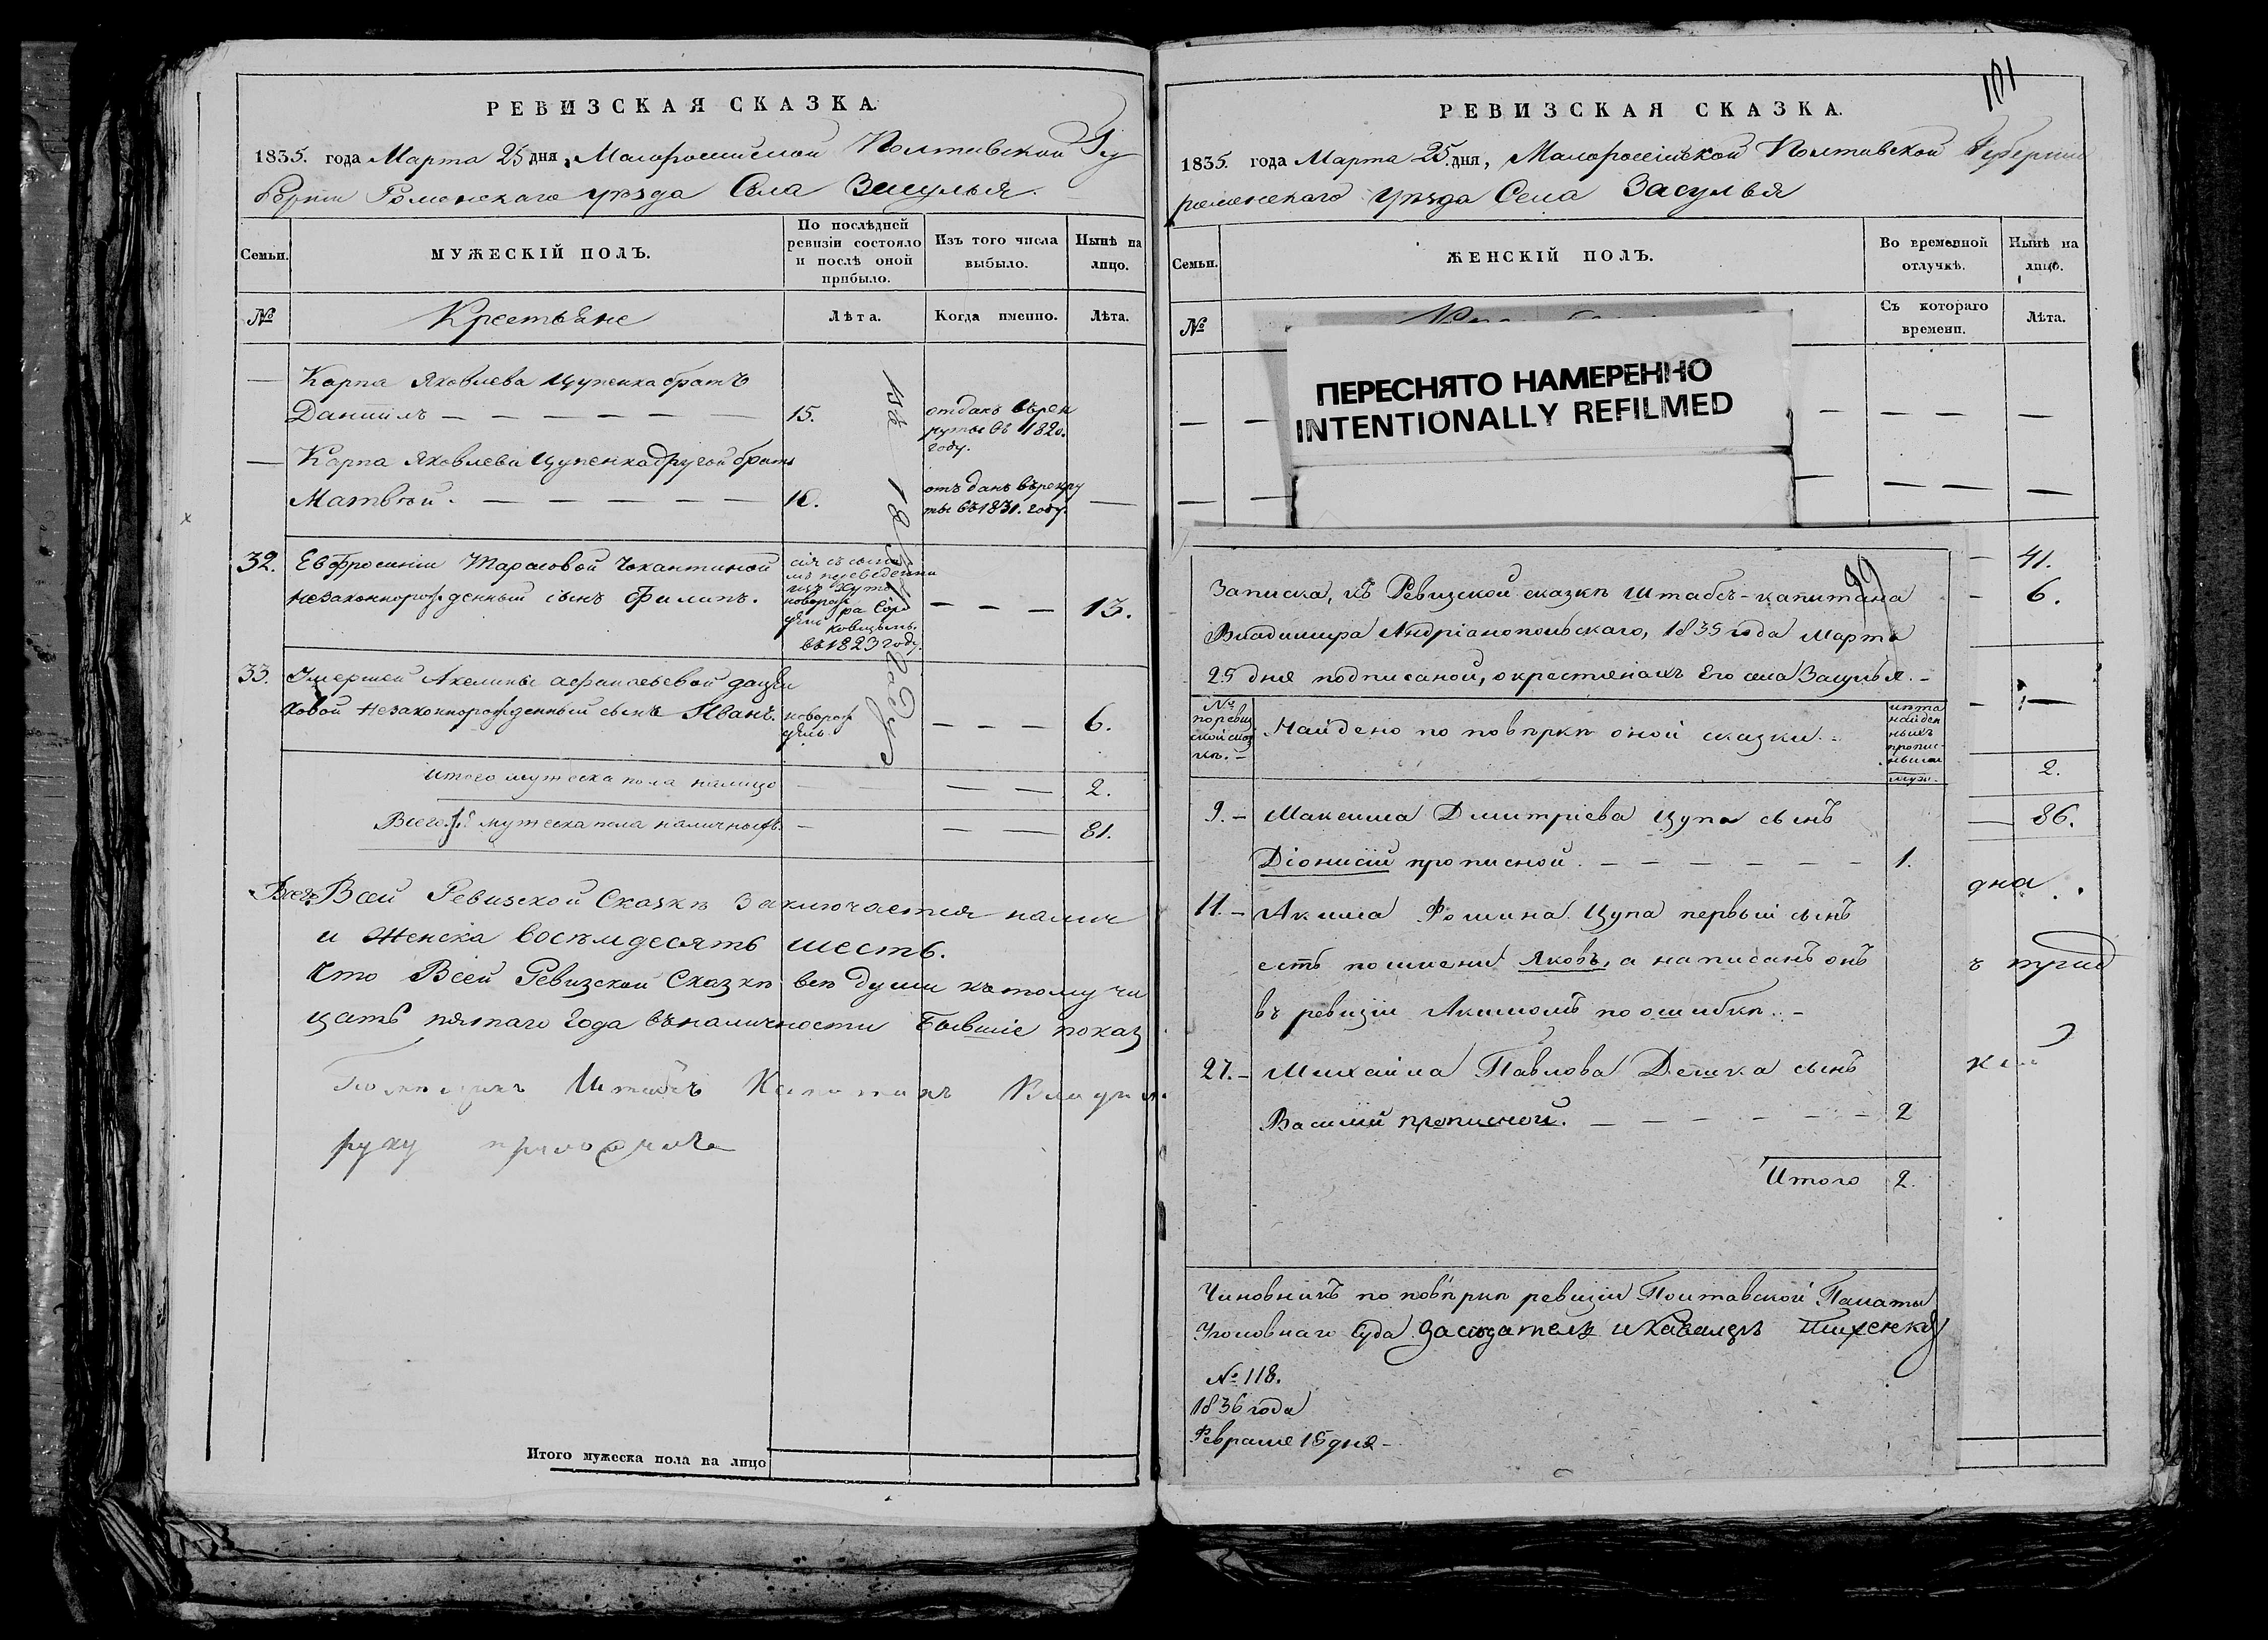 РЕВИЗСКАЯ СКАЗКА.
1835. года Марта 25 дня, Малороссійской Полтавской Гу
берніи Роменскаго уѣзда Села Засулья.
Семьи.
МУЖЕСКІЙ ПОЛЪ.
По послѣдней ревизіи состояло и послѣ оной прибыло.
Изъ того числа выбыло.
Нынѣ на лицо.
№
Крестьяне
Лѣта.
Когда именно.
Лѣта.
— Карпа Яковлева Цупенка братъ
Даніилъ — — — — — — — 15. отданъ въ рек
руты въ 1820.
году.
— Карпа Яковлева Цупенка другой братъ
Матвѣй. — — — — — — 10. отъданъ въ рекру
ты въ 1831. году. —
въ 1834 году
32. Евфросиніи Тарасовой
незаконнорожденный сынъ Филипъ. — — — 13.
новорож
въ 1823 году.
33. Умершей Акелины Афанасьевой
незаконнорожденный сынъ Иванъ. новорож — — — 6.
Итого мужеска пола налицо — — — — 2.
Всего мужеска пола наличныхъ. — — — 81.
Всего Всей Ревизской Сказкѣ заключается налич
и Женска восѣмдесять шесть.
Что Всей Ревизской Сказкѣ всѣ души къ тому чи
цать пятаго года въ наличности бывшіе показ
Помѣщикъ Штабсъ Капитанъ Владим
руку приложилъ
Итого мужеска пола на лицо
101
РЕВИЗСКАЯ СКАЗКА.
1835. года Марта 25. дня, Малороссійской Полтавской Губерніи
роменскаго уѣзда Села Засулья
Семьи.
ЖЕНСКІЙ ПОЛЪ.
Во временной отлучкѣ.
Нынѣ на лицо.
№
Съ котораго времени.
Лѣта.
ПЕРЕСНЯТО НАМЕРЕННО
INTENTIONALLY REFILMED
— 41.
— 6.
2.
— 86.
дна.
ъ трид
99
Записка, къ Ревизской сказкѣ Штабсъ-капитана
Владимира Андріанопольскаго, 1835 года Марта
25 дня подписаной, о крестьянахъ его села Засулья. –
№
по ревиз
ской сказ
кѣ. –
Найдено по повѣркѣ оной сказки. –
лѣта
найден
ныхъ
пропис-
ными
муж. –
9. – Максима Дмитріева Цупа сынъ
Діонисій прописной. — — — — — — 1.
11. – Акима Фомина Цупа первый сынъ
есть по имени Яковъ, а написанъ онъ
въ ревизіи Акимомъ по ошибкѣ. –
27. – Михаила Павлова Дешка сынъ
Василій прописной. — — — — — 2
Итого 2.
Чиновникъ по повѣркѣ ревизіи Полтавской Палаты
Уголовнаго Суда Засѣдатель и Кавалеръ
№ 118.
1836 года
Февраля 15 дня –